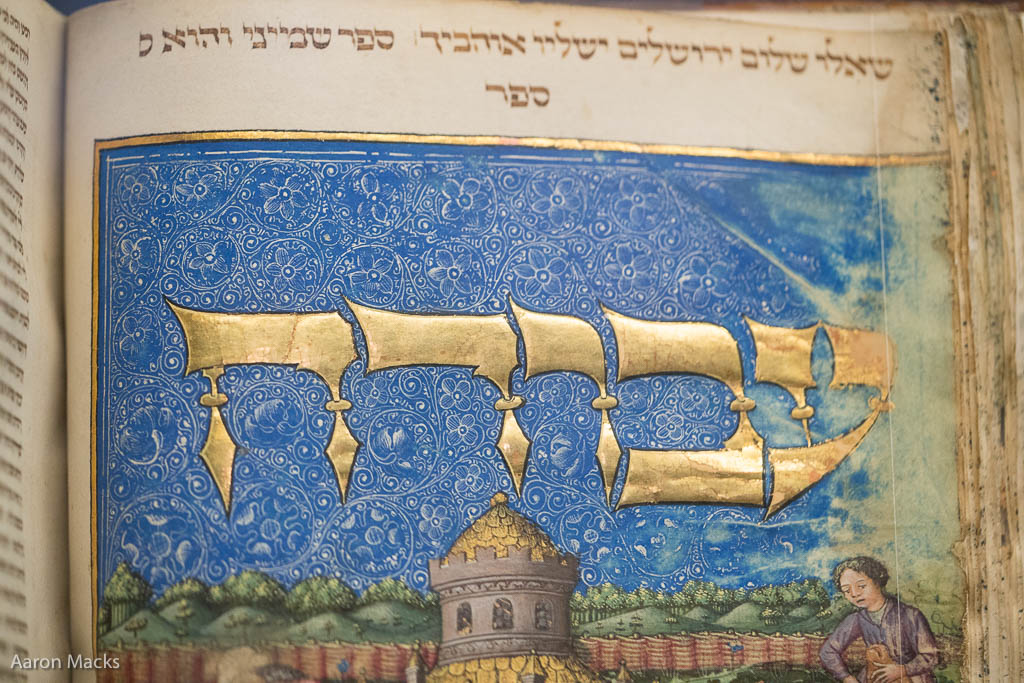 שאלו שלום ירושלים ישליו אוהביך: ספר שמיני והוא ס
ספר
עבודה
Aaron Macks